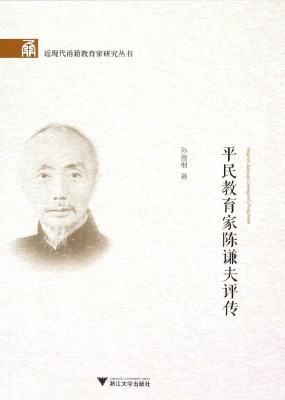 甬
近现代甬籍教育家研究丛书
孙善根 著
平民教育家陈谦夫评传
Pingmin Jiaoyujia Chenqianfu Pingzhuan
浙江大学出版社